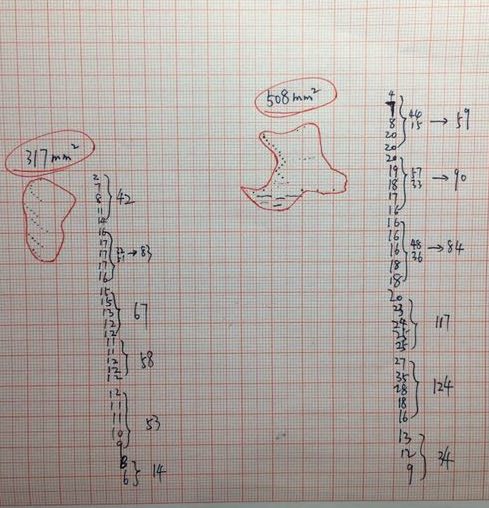 317mm²
2
7
8
11
14
42
16
17
17
17
16
→ 83
15
15
13
12
12
67
11
11
12
12
12
58
12
11
11
10
9
53
8
6
14
508mm²
4
7
8
20
20
44
15 → 59
20
19
18
17
16
57
33 → 90
16
16
16
18
18
48
36 → 84
20
23
24
25
25
117
27
35
28
18
16
124
13
12
9
34